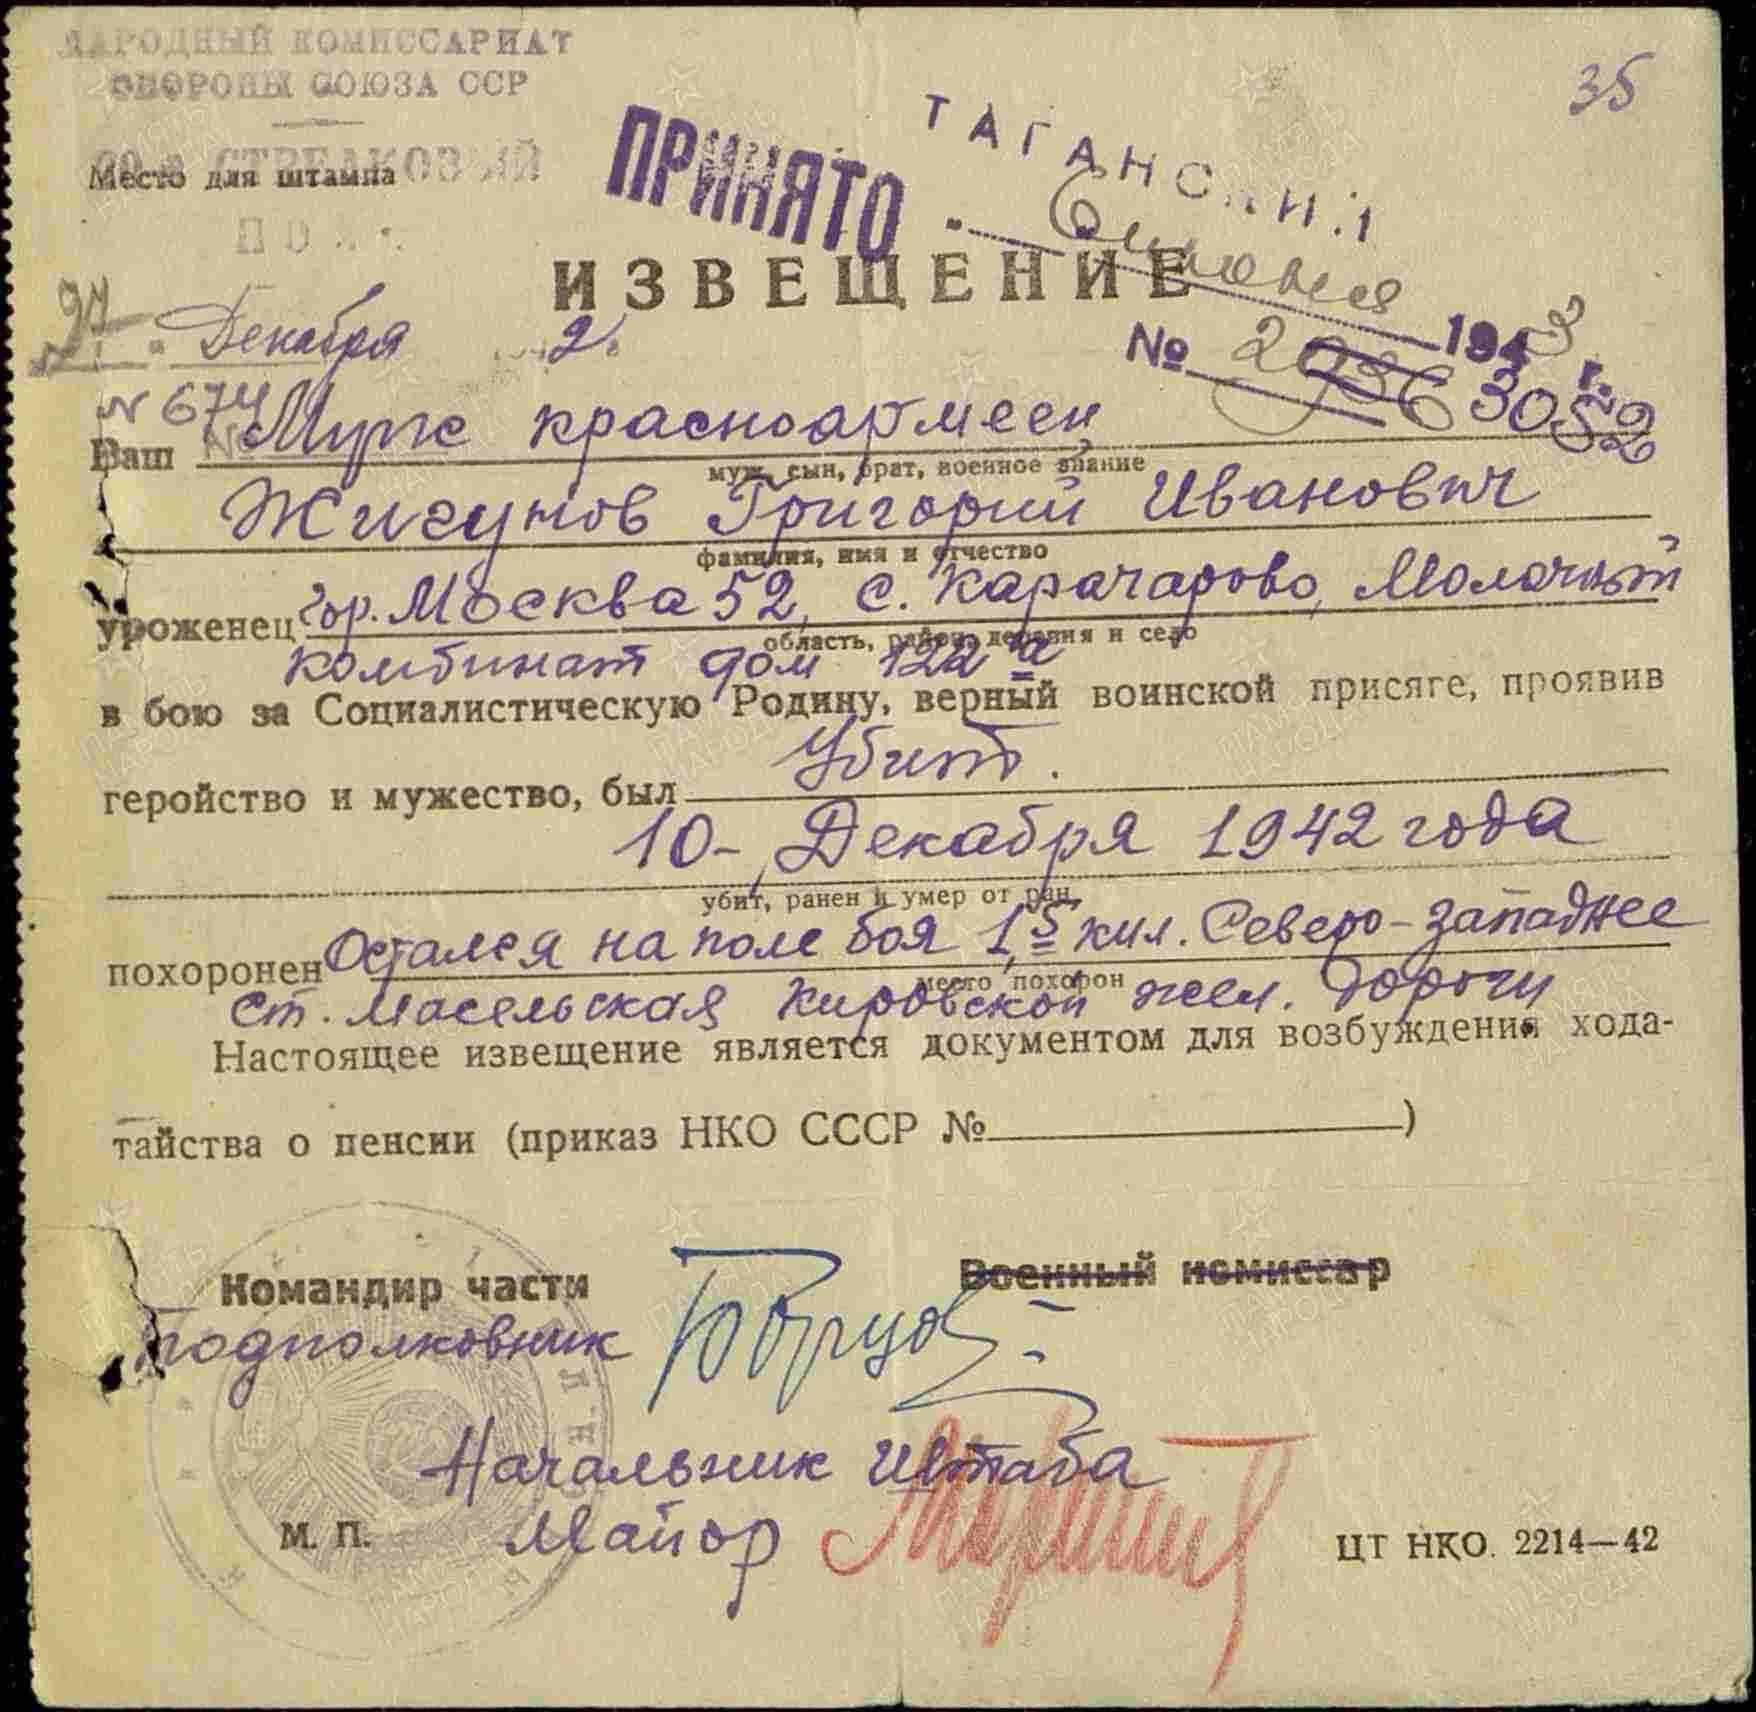 НАРОДНЫЙ КОМИССАРИАТ
ОБОРОНЫ СОЮЗА ССР
35
СТРЕЛКОВЫЙ
Место для штампа
ПРИНЯТО
ТАГАНСКИЙ
ИЗВЕЩЕНИЕ
Декабря 2
1943 г.
№ 3052
N 674
Ваш Муж красноармеец
муж, сын, брат, военное звание
Жигунов Григорий Иванович
фамилия, имя и отчество
уроженец гор. Москва 52, с. Карачарово, Молочный
область, район, деревня и село
комбинат дом 122 а
в бою за Социалистическую Родину, верный воинской присяге, проявив
геройство и мужество, был Убит.
10 - Декабря 1942 года
убит, ранен и умер от ран
похоронен Остался на поле боя 1,5 кил. Северо-западнее
место похорон
ст. Масельская Кировской жел. дороги
Настоящее извещение является документом для возбуждения хода-
тайства о пенсии (приказ НКО СССР № )
Командир части
Военный комиссар
подполковник
Начальник Штаба
М. П. Майор
ЦТ НКО. 2214—42